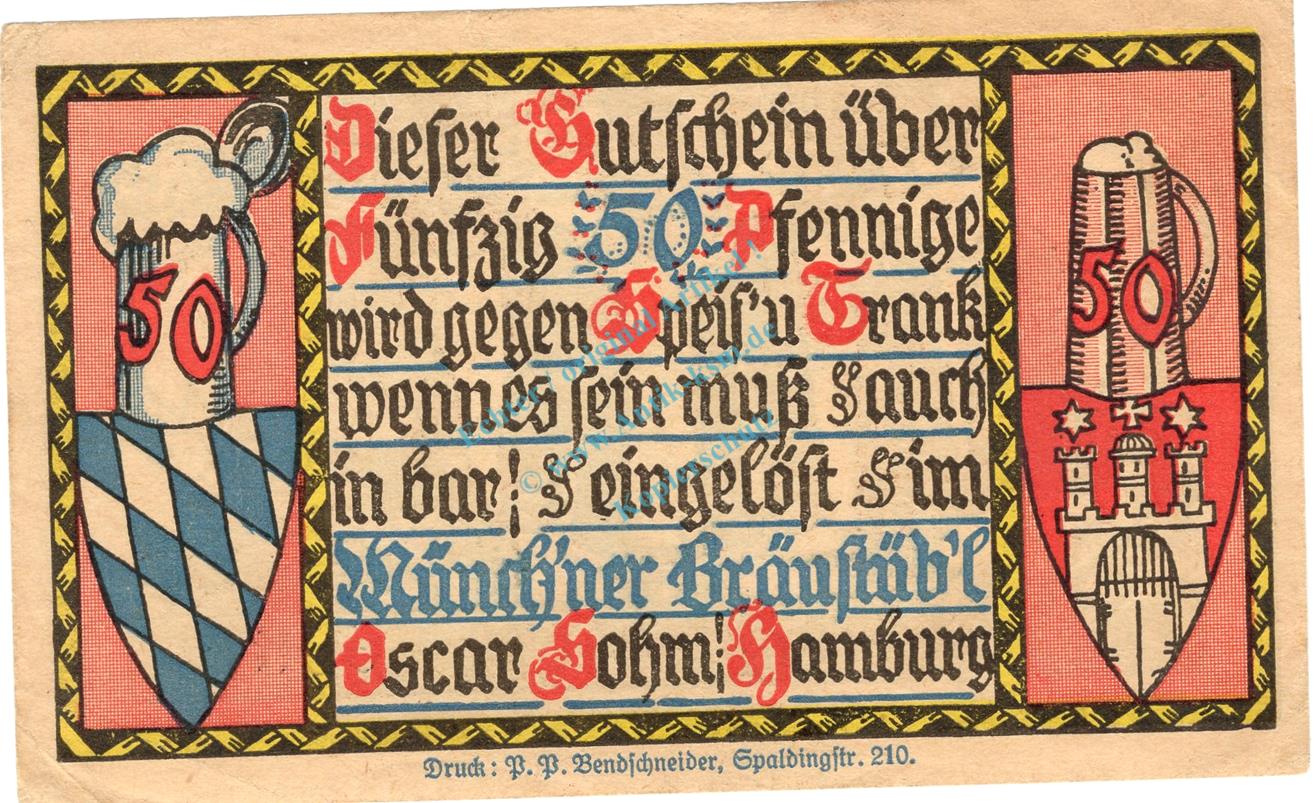 Dieser Gutschein über
Fünfzig 50 Pfennige
wird gegen Speis' u Trank
wenn es sein muß auch
in bar! eingelöst im
Münch'ner Bräustüb'l
Oscar Sohm! Hamburg
50
50
Druck: P. P. Bendschneider, Spaldingstr. 210.
Echter / original Artikel!
© www.Antikskm.de
Kopierschutz